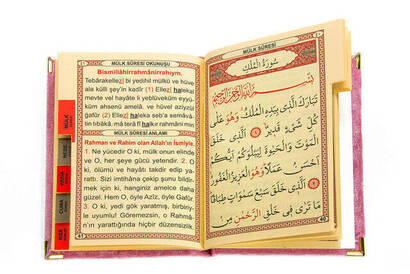 MÜLK SÛRESİ OKUNUŞU
Bismillâhirrahmânirrahîym.
Tebârakellezî bi yedihil mülkü ve hüve
alâ külli şey'in kadîr (1) Ellezî halekal
mevte vel hayâte li yeblüveküm eyyü-
küm ahsenü amelâ. ve hüvel azîyzül
ğafûr (2) Ellezî haleka seb'a semâvâ-
tin tıbâkâ. mâ terâ fî halkır rahmâni min
MÜLK SÛRESİ ANLAMI
Rahman ve Rahim olan Allah'ın İsmiyle.
1. Ne yücedir O ki, mülk onun elinde
ve O, her şeye gücü yetendir. 2. O
ki, ölümü ve hayâtı takdir edip ya-
rattı. Sizi imtihâna çekip şunu bildir-
mek için ki, hanginiz amelce daha
güzel. Hem O, öyle Azîz, öyle Gafûr.
3. O ki, yedi gök yaratmış, birbiriy-
le uyumlu! Göremezsin, o Rahmâ-
n'ın yarattığında hiçbir düzensizlik,
MÜLK
NEBE
CUMA
MÜLK SÛRESİ
سُورَةُ الْمُلْكِ
بِسْمِ اللّٰهِ الرَّحْمٰنِ الرَّحِيمِ
تَبَارَكَ الَّذِي بِيَدِهِ الْمُلْكُ وَهُوَ عَلٰى
كُلِّ شَيْءٍ قَدِيرٌ ١ الَّذِي خَلَقَ
الْمَوْتَ وَالْحَيٰوةَ لِيَبْلُوَكُمْ اَيُّكُمْ
اَحْسَنُ عَمَلًا وَهُوَ الْعَزِيزُ الْغَفُورُ
٢ الَّذِي خَلَقَ سَبْعَ سَمٰوَاتٍ طِبَاقًا
مَا تَرٰى فِي خَلْقِ الرَّحْمٰنِ مِنْ